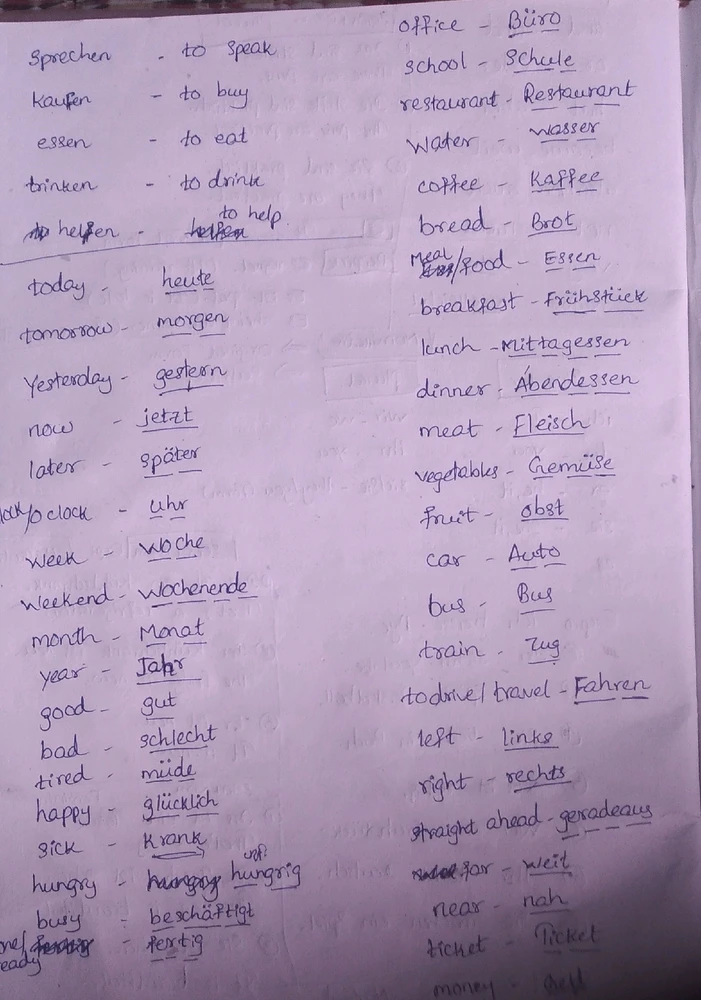 sprechen - to speak
kaufen - to buy
essen - to eat
trinken - to drink
helfen - to help
today - heute
tomorrow - morgen
Yesterday - gestern
now - jetzt
later - später
/o clock - uhr
week - woche
weekend - wochenende
month - Monat
year - Jahr
good - gut
bad - schlecht
tired - müde
happy - glücklich
sick - krank
hungry - hungrig
busy - beschäftigt
ready - fertig
office - Büro
school - Schule
restaurant - Restaurant
water - wasser
coffee - Kaffee
bread - Brot
Meal/food - Essen
breakfast - Frühstück
lunch - Mittagessen
dinner - Abendessen
meat - Fleisch
vegetables - Gemüse
fruit - obst
car - Auto
bus - Bus
train - Zug
to drive/travel - Fahren
left - links
right - rechts
straight ahead - geradeaus
far - weit
near - nah
ticket - Ticket
money - Geld